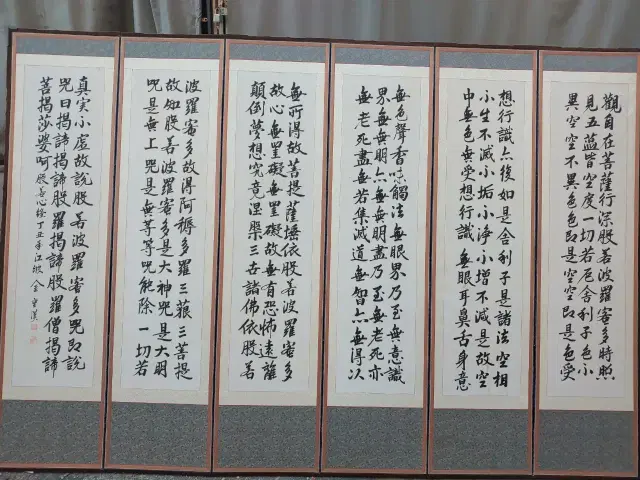 觀自在菩薩行深般若波羅密多時照
見五蘊皆空度一切苦厄舍利子色不
異空空不異色色即是空空即是色受
想行識亦復如是舍利子是諸法空相
不生不滅不垢不淨不增不減是故空
中無色無受想行識無眼耳鼻舌身意
無色聲香味觸法無眼界乃至無意識
界無無明亦無無明盡乃至無老死亦
無老死盡無苦集滅道無智亦無得以
無所得故菩提薩埵依般若波羅密多
故心無罣礙無罣礙故無有恐怖遠離
顛倒夢想究竟涅槃三世諸佛依般若
波羅密多故得阿耨多羅三藐三菩提
故知般若波羅密多是大神咒是大明
咒是無上咒是無等等咒能除一切苦
真実不虛故說般若波羅密多咒即說
咒曰揭諦揭諦般羅揭諦般羅僧揭諦
菩揭莎婆呵 般若心経 丁丑年 江坡 金